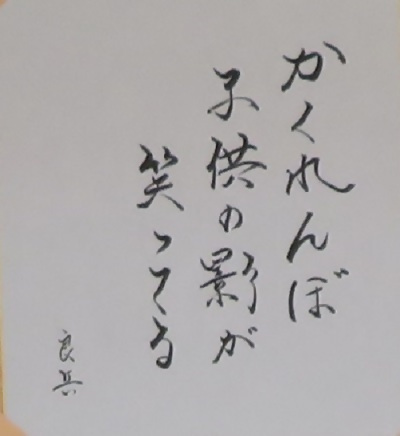 かくれんぼ
子供の影が
笑ってる
良兵